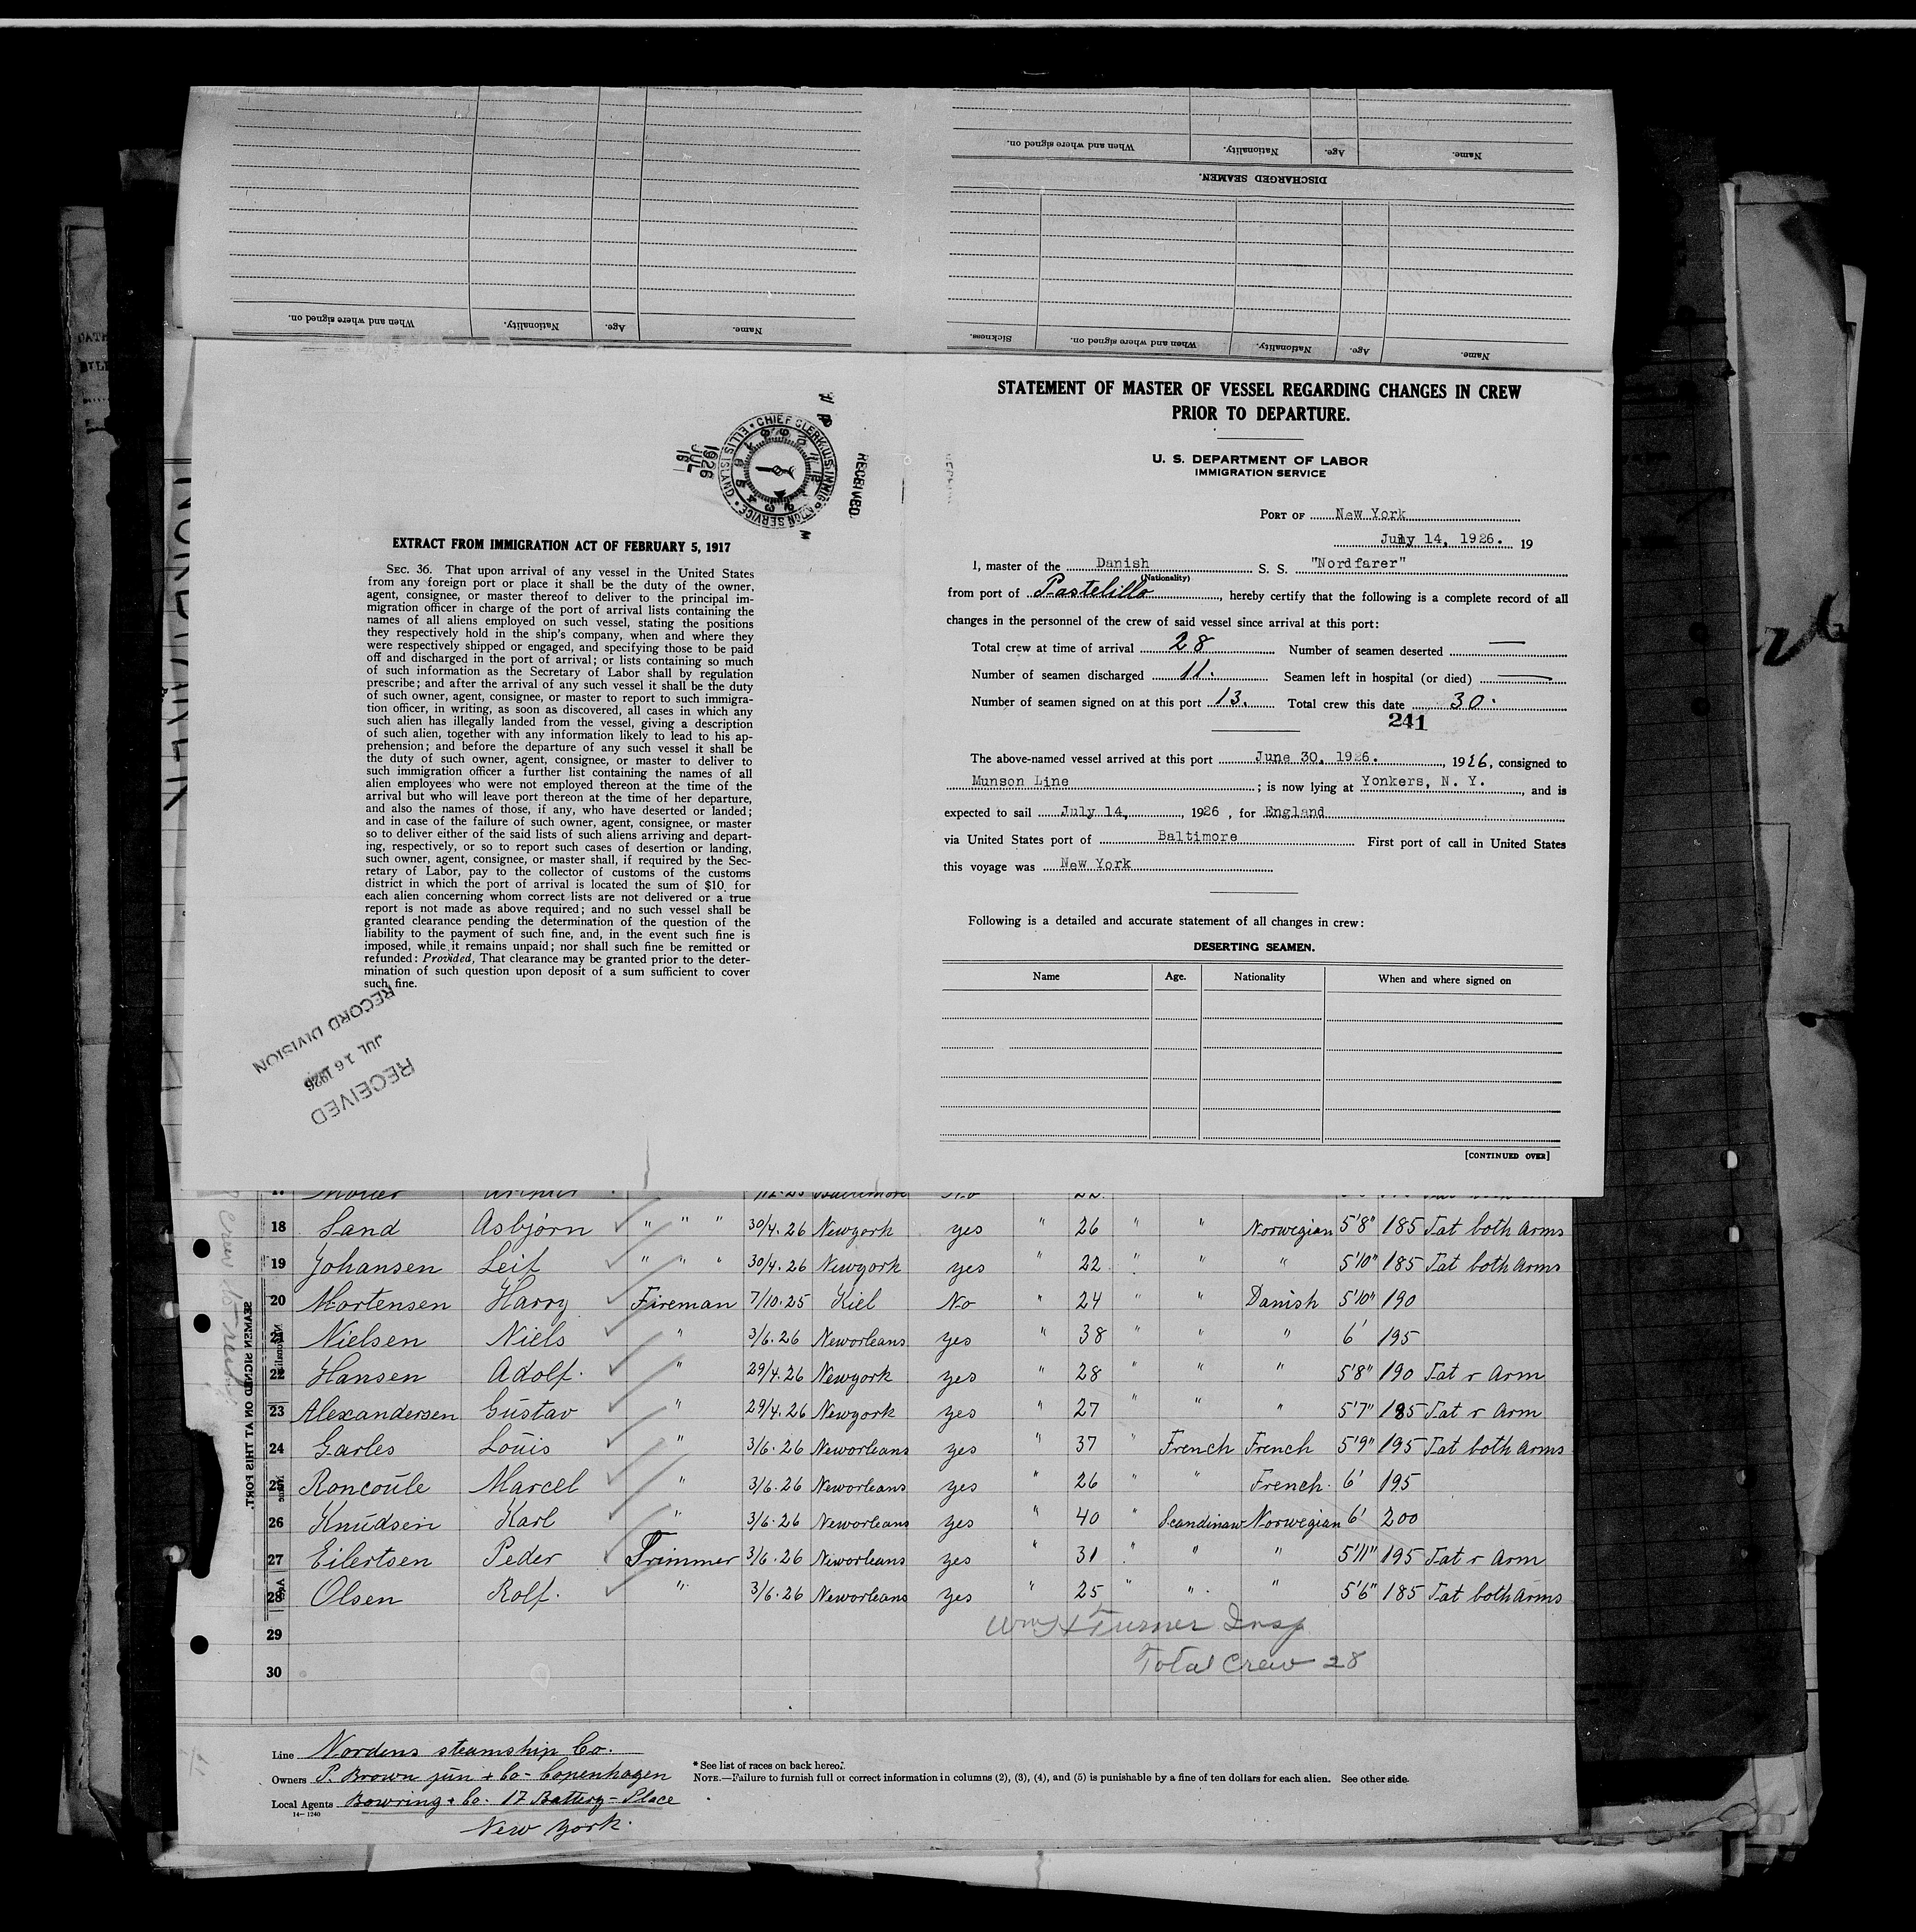 When and where signed on.
Nationality.
Age.
Name.
DISCHARGED SEAMEN.
When and where signed on.
Nationality.
Age.
Name.
Sickness.
When and where signed on.
Nationality.
Age.
Name.
RECEIVED
CHIEF CLERK U.S. IMMIGRATION SERVICE • ELLIS ISLAND •
1926
JUL
16
EXTRACT FROM IMMIGRATION ACT OF FEBRUARY 5, 1917
SEC. 36. That upon arrival of any vessel in the United States
from any foreign port or place it shall be the duty of the owner,
agent, consignee, or master thereof to deliver to the principal im-
migration officer in charge of the port of arrival lists containing the
names of all aliens employed on such vessel, stating the positions
they respectively hold in the ship's company, when and where they
were respectively shipped or engaged, and specifying those to be paid
off and discharged in the port of arrival; or lists containing so much
of such information as the Secretary of Labor shall by regulation
prescribe; and after the arrival of any such vessel it shall be the duty
of such owner, agent, consignee, or master to report to such immigra-
tion officer, in writing, as soon as discovered, all cases in which any
such alien has illegally landed from the vessel, giving a description
of such alien, together with any information likely to lead to his ap-
prehension; and before the departure of any such vessel it shall be
the duty of such owner, agent, consignee, or master to deliver to
such immigration officer a further list containing the names of all
alien employees who were not employed thereon at the time of the
arrival but who will leave port thereon at the time of her departure,
and also the names of those, if any, who have deserted or landed;
and in case of the failure of such owner, agent, consignee, or master
so to deliver either of the said lists of such aliens arriving and depart-
ing, respectively, or so to report such cases of desertion or landing,
such owner, agent, consignee, or master shall, if required by the Sec-
retary of Labor, pay to the collector of customs of the customs
district in which the port of arrival is located the sum of $10 for
each alien concerning whom correct lists are not delivered or a true
report is not made as above required; and no such vessel shall be
granted clearance pending the determination of the question of the
liability to the payment of such fine, and, in the event such fine is
imposed, while it remains unpaid; nor shall such fine be remitted or
refunded: Provided, That clearance may be granted prior to the deter-
mination of such question upon deposit of a sum sufficient to cover
such fine.
RECEIVED
JUL 16 1926
RECORD DIVISION
STATEMENT OF MASTER OF VESSEL REGARDING CHANGES IN CREW
PRIOR TO DEPARTURE.
U. S. DEPARTMENT OF LABOR
IMMIGRATION SERVICE
PORT OF New York
July 14, 1926. 19
I, master of the Danish S. S. "Nordfarer"
(Nationality)
from port of Pastelillo, hereby certify that the following is a complete record of all
changes in the personnel of the crew of said vessel since arrival at this port:
Total crew at time of arrival 28 Number of seamen deserted —
Number of seamen discharged 11. Seamen left in hospital (or died) —
Number of seamen signed on at this port 13. Total crew this date 30.
241
The above-named vessel arrived at this port June 30, 1926. , 1926, consigned to
Munson Line ; is now lying at Yonkers, N. Y. , and is
expected to sail July 14, , 1926 , for England
via United States port of Baltimore First port of call in United States
this voyage was New York
Following is a detailed and accurate statement of all changes in crew:
DESERTING SEAMEN.
Name Age. Nationality When and where signed on
[CONTINUED OVER]
SEAMEN SIGNED ON AT THIS PORT.
18 Sand Asbjørn " " " 30/4.26 Newyork yes " 26 " " Norwegian 5'8" 185 Tat both Arms
19 Johansen Leif " " " 30/4.26 Newyork yes " 22 " " " 5'10" 185 Tat both Arms
20 Mortensen Harry Fireman 7/10.25 Kiel No " 24 " " Danish 5'10" 190
21 Nielsen Niels " 3/6.26 Neworleans yes " 38 " " " 6' 195
22 Hansen Adolf. " 29/4.26 Newyork yes " 28 " " " 5'8" 190 Tat r Arm
23 Alexandersen Gustav " 29/4.26 Newyork yes " 27 " " " 5'7" 185 Tat r Arm
24 Garles Louis " 3/6.26 Neworleans yes " 37 " French French 5'9" 195 Tat both Arms
25 Roncoule Marcel " 3/6.26 Neworleans yes " 26 " " French. 6' 195
26 Knudsen Karl " 3/6.26 Neworleans yes " 40 " Scandinaw Norwegian 6' 200
27 Eilertsen Peder Trimmer 3/6.26 Neworleans yes " 31 " " " 5'11" 195 Tat r Arm
28 Olsen Rolf. " 3/6.26 Neworleans yes " 25 " " " 5'6" 185 Tat both Arms
29 Wm H Turner Insp.
30 Total Crew 28
Line Nordens steamship Co.
Owners P. Brown jun + Co - Copenhagen
Local Agents Bowring + Co. 17 Battery-Place
14—1240
New York.
* See list of races on back hereof.
NOTE.—Failure to furnish full or correct information in columns (2), (3), (4), and (5) is punishable by a fine of ten dollars for each alien. See other side.